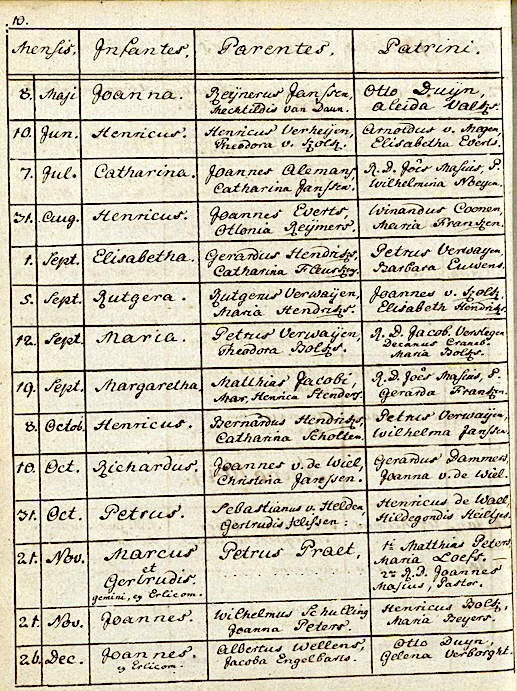 10.
Mensis, Infantes. Parentes. Patrini.
8. Maji Joanna. Reijnerus Janssen, Otto Duijn,
Mechtildis van Daun. Aleida Valks.
10. Jun. Henricus. Henricus Verheijen, Arnoldus v. Megen,
Theodora v. Elisabetha Everts.
7. Jul. Catharina. Joannes Alemans, R. D. Joës Masius, P.
Catharina Janssen. Wilhelmina Noeyen.
31. Aug. Henricus. Joannes Everts, Winandus Coenen,
Otlonia Reijmers. Maria Frantzen.
1. Sept. Elisabetha. Gerardus Hendriks, Petrus Verwayen,
Catharina Barbara Euwens.
5. Sept. Rutgera. Rutgerus Verwaijen, Joannes v.
Maria Hendriks. Elisabeth Hendriks.
12. Sept. Maria. Petrus Verwaijen, R. D. Jacob. Verstegen
Theodora Decanus
Maria
19. Sept. Margaretha, Matthias Jacobi, R. D. Joës Masius, P.
Mar. Henrica Henders. Gerarda Frantzen.
8. Octob. Henricus. Bernardus Hendriks, Petrus Verwaijen,
Catharina Scholten. Wilhelma Janssen.
10. Oct. Richardus. Joannes v. de Wiel, Gerardus Dammers,
Christina Janssen. Joanna v. de Wiel.
31. Oct. Petrus. Sebastianus v. Helden, Henricus de Wael,
Gertrudis Jelissen: Hildegondis Heiltjes.
21. Nov. Marcus Petrus Praet, 1i Matthias Peters
et Maria Loeffs.
Gertrudis. 2æ R. D. Joannes
gemini, ex Erlicom. Masius, Pastor.
21. Nov. Joannes. Wilhelmus Schulling Henricus
Joanna Peters. Maria Beyers.
26. Dec. Joannes. Albertus Wellens, Otto Duyn,
ex Erlicom. Jacoba Engelbarts. Gelena Verborght.